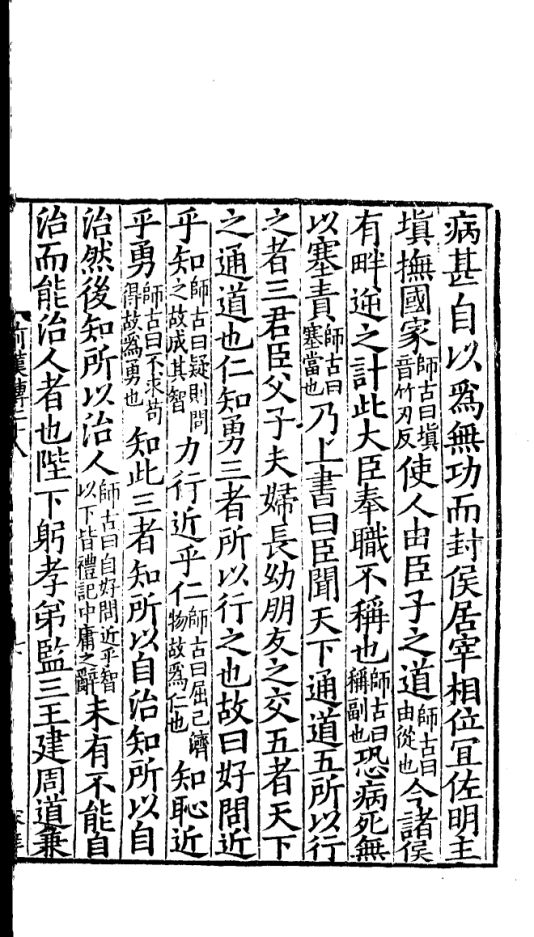 病甚自以爲無功而封侯居宰相位宜佐明主
塡撫國家師古曰塡音竹刃反使人由臣子之道師古曰由從也今諸侯
有畔逆之計此大臣奉職不稱也師古曰稱副也恐病死無
以塞責師古曰塞當也乃上書曰臣聞天下通道五所以行
之者三君臣父子夫婦長幼朋友之交五者天下
之通道也仁知勇三者所以行之也故曰好問近
乎知師古曰疑則問之故成其智力行近乎仁師古曰屈己濟物故爲仁也知恥近
乎勇師古曰不求苟得故爲勇也知此三者知所以自治知所以自
治然後知所以治人師古曰自好問近乎智以下皆禮記中庸之辭未有不能自
治而能治人者也陛下躬孝弟監三王建周道兼
前漢傳二八
七